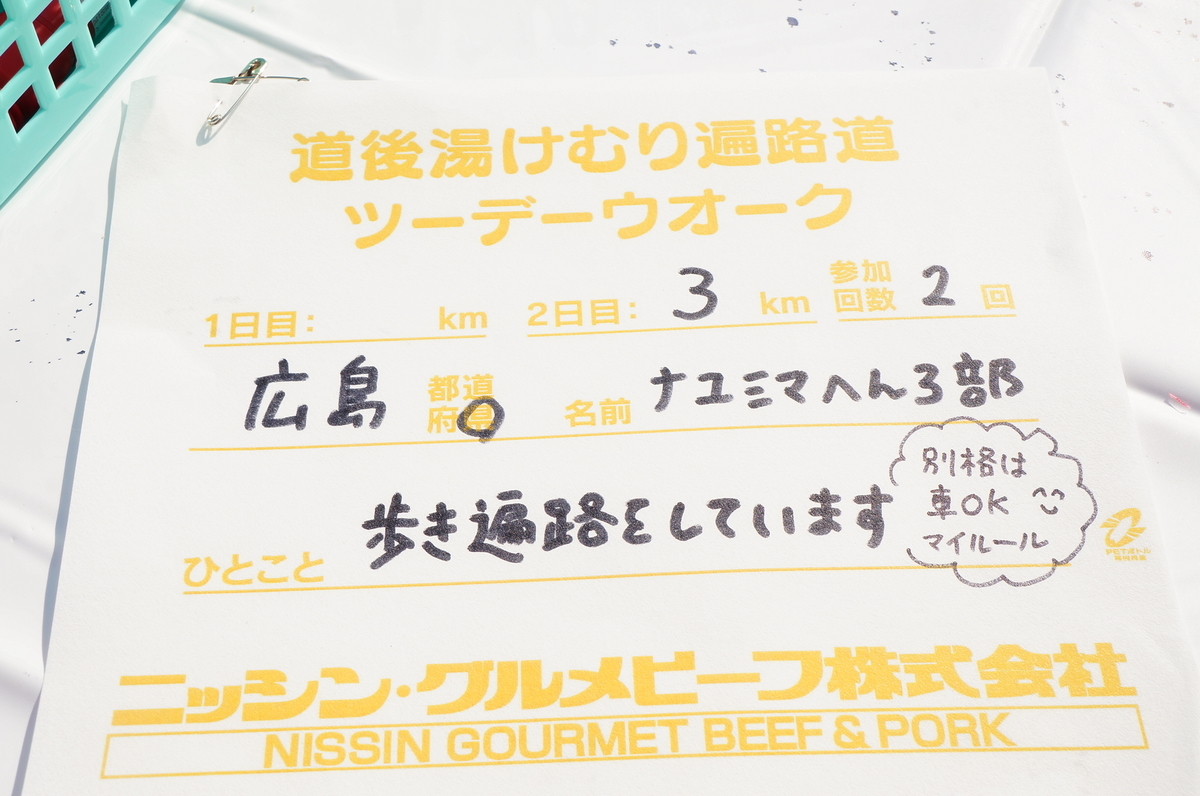 道後湯けむり遍路道
ツーデーウオーク
1日目: km 2日目: 3 km 参加回数 2 回
広島 都道府県 名前 ナユミマへんろ部
ひとこと 歩き遍路をしています
別格は
車OK
マイルール
PETボトル
ニッシン・グルメビーフ株式会社
NISSIN GOURMET BEEF & PORK